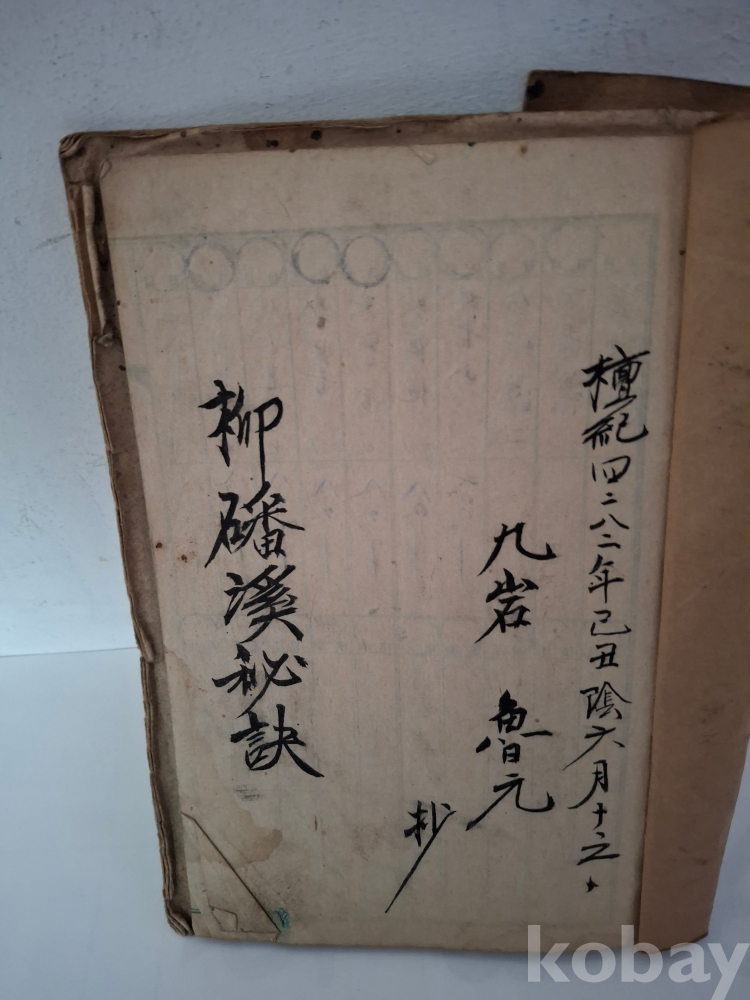 檀紀四二八二年己丑陰六月十之
九岩 魯元
抄
柳磻溪秘訣
kobay